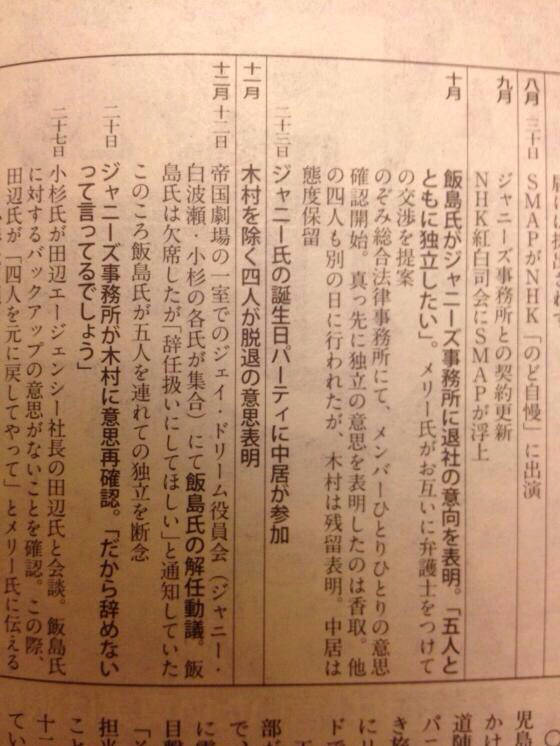 八月 三十日 SMAPがNHK「のど自慢」に出演
九月 ジャニーズ事務所との契約更新
NHK紅白司会にSMAPが浮上
十月 飯島氏がジャニーズ事務所に退社の意向を表明。「五人と
ともに独立したい」。メリー氏がお互いに弁護士をつけて
の交渉を提案
のぞみ総合法律事務所にて、メンバーひとりひとりの意思
確認開始。真っ先に独立の意思を表明したのは香取。他
の四人も別の日に行われたが、木村は残留表明。中居は
態度保留
二十三日 ジャニー氏の誕生日パーティに中居が参加
十一月 木村を除く四人が脱退の意思表明
十二月 十二日 帝国劇場の一室でのジェイ・ドリーム役員会(ジャニー・
白波瀬・小杉の各氏が集合)にて飯島氏の解任動議。飯
島氏は欠席したが「辞任扱いにしてほしい」と通知していた
このころ飯島氏が五人を連れての独立を断念
二十日 ジャニーズ事務所が木村に意思再確認。「だから辞めない
って言ってるでしょう」
二十七日 小杉氏が田辺エージェンシー社長の田辺氏と会談。飯島氏
に対するバックアップの意思がないことを確認。この際、
田辺氏が「四人を元に戻してやって」とメリー氏に伝える